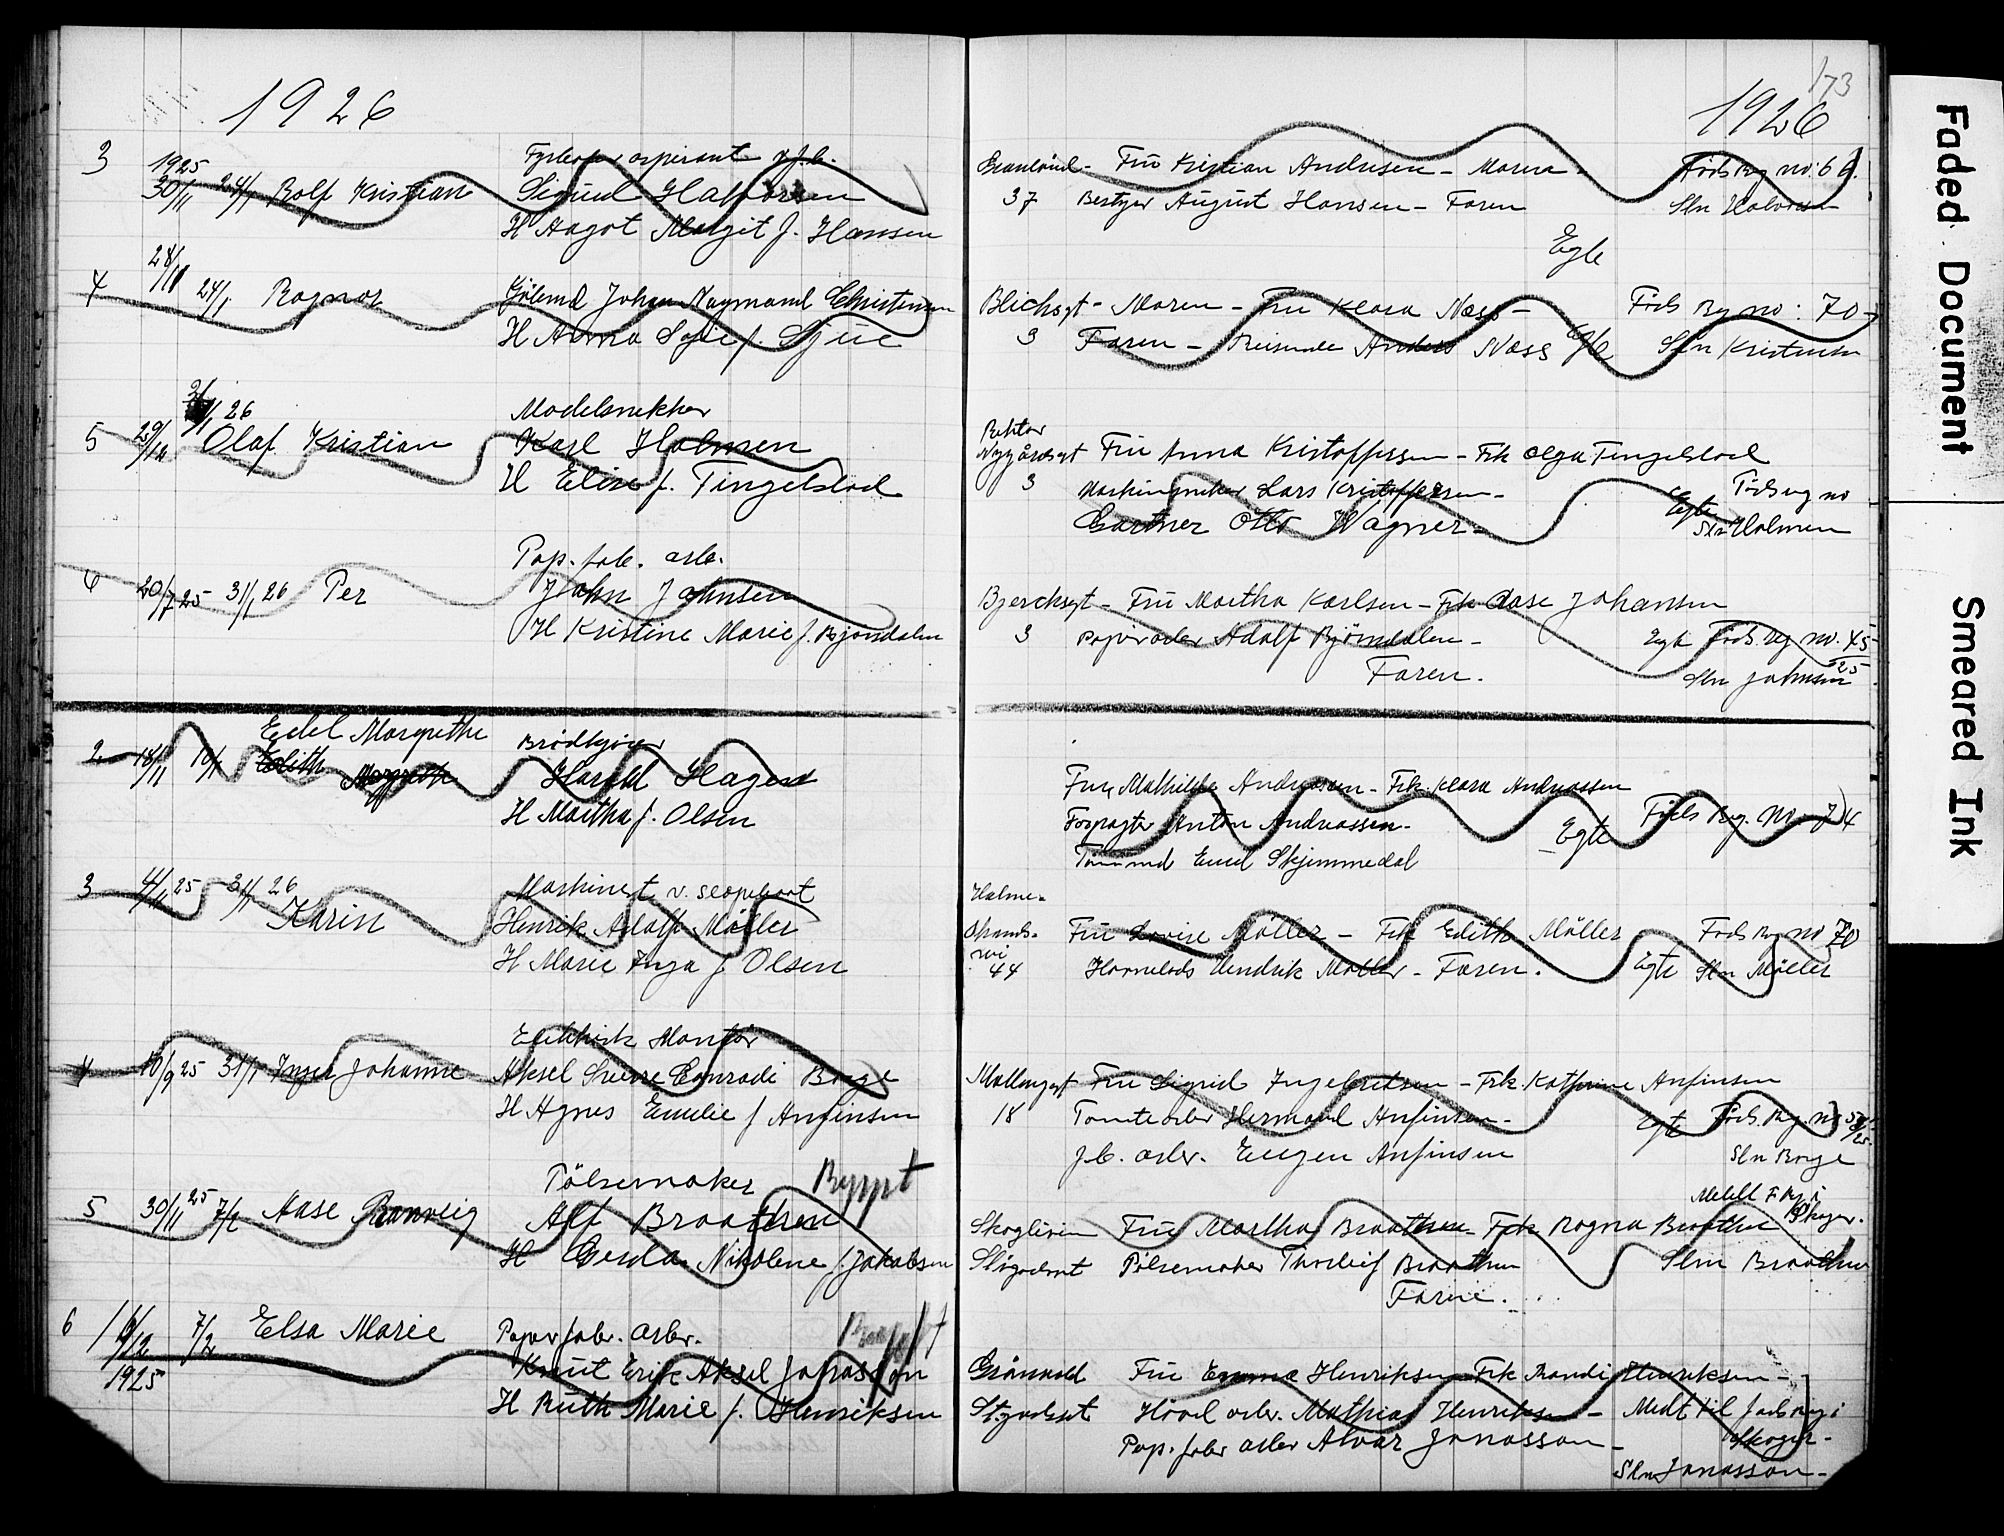 1926
3
1925
30/11 24/1 Rolf Kristian
Fyrbøter aspirant
Sigurd Halvorsen
H Aagot Margit f. Hansen
4
28/11 24/1 Ragnar
Johan Christensen
H Anna Sofie f.
5
29/12 3/1 26
Olaf Kristian
Modelsnekker
Karl Holmen
H Elise f. Tingelstad
6
20/7 25 31/1 26 Per
Pap. fab. arb.
John Johnsen
H Kristine Marie f. Bjørndalen
2
18/11 10/1
Edel Margrethe
Edith Margrethe
Brødkjører
Harald Hagen
H Martha f. Olsen
3
4/11 25 31/1 26
Karin
Maskinist v.
Henrik Adolf Møller
H Marie Inga f Olsen
4
10/9 25 31/1 Inger Johanne
Elektrisk Montør
Aksel Sverre Conradi Borge
H Agnes Emilie f Anfinsen
5
30/11 25 7/2 Aase Ranveig
Pølsemaker
Alf Braathen
H Gerda Nikoline f. Jakobsen
6
16/12 7/2 Elsa Marie
1925
Papir fabr. arbr.
Knut Erik Aksel Jonasson
H Ruth Marie f. Henriksen
173
1926
Grønland - Fru Kristian Andersen - Moren -
37 Bestyrer August Hansen - Faren
Føds Reg no: 66.
Sln Halvorsen
Egte
Blichsgt - Moren - Fru Klara Næss -
3 Faren - Reisende Anders Næss Egte
Føds Reg no: 70
Sln Kristensen
Rektor
Nygårdsgt Fru Anna Kristoffersen - Frk Olga Tingelstad
3 Lars Kristoffersen -
Gartner Otto Wagner -
Føds reg no
Egte
Sln Holmen
Bjercksgt - Fru Martha Karlsen - Frk Aase Johansen
3 Papir arbr Adolf Bjørndalen -
Faren.
Egte Føds. reg no. 45
25
Sln Johnsen
Fru Mathilde Andreassen - Frk. Klara Andreassen
Forpagter Anton Andreassen -
Tømmermd Emil Skjimmedal
Egte
Føds Reg. No. 74
Holme-
strands-
vei
44
Fru Lovise Møller - Frk Edith Møller
Havnelods Hendrik Møller - Faren.
Føds Reg no 70
Egte Sln Møller
Møllergt Fru Sigrid Ingebretsen - Frk. Kathrine Anfinsen
18 Tomtearbr Herman Anfinsen -
J.b. arbr. Eugen Anfinsen
Egte Føds. Reg. no 58
25
Sln Borge
Skoglien
Fru Martha Braathen - Frk Ragna Braathen
Pølsemaker Thorleif Braathen
Faren.
Meldt F Reg i
Skoger.
Sln Braathen
Grønvold
Fru Emma Henriksen - Frk Randi Henriksen -
Høvl arbr. Mathias Henriksen -
Pap. fabr arbr Alvar Jonasson -
Meldt til føds reg i
Skoger -
Sln Jonasson -
Faded Document
Smeared Ink